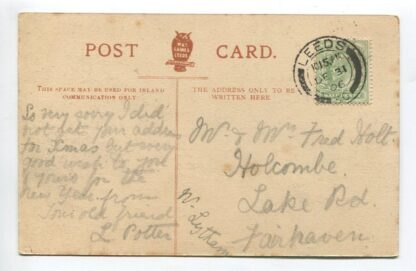 POST CARD.
THIS SPACE MAY BE USED FOR INLAND
COMMUNICATION ONLY
THE ADDRESS ONLY TO BE
WRITTEN HERE.
LEEDS
10.15 PM
DE 31
06
So very sorry I did
not get your address
for Xmas but every
good wish to you &
yours for the
New Year from
Your old friend
L Potter
Mr & Mrs Fred Holt.
Holcombe.
Lake Rd.
Fairhaven.
Nr. Lytham